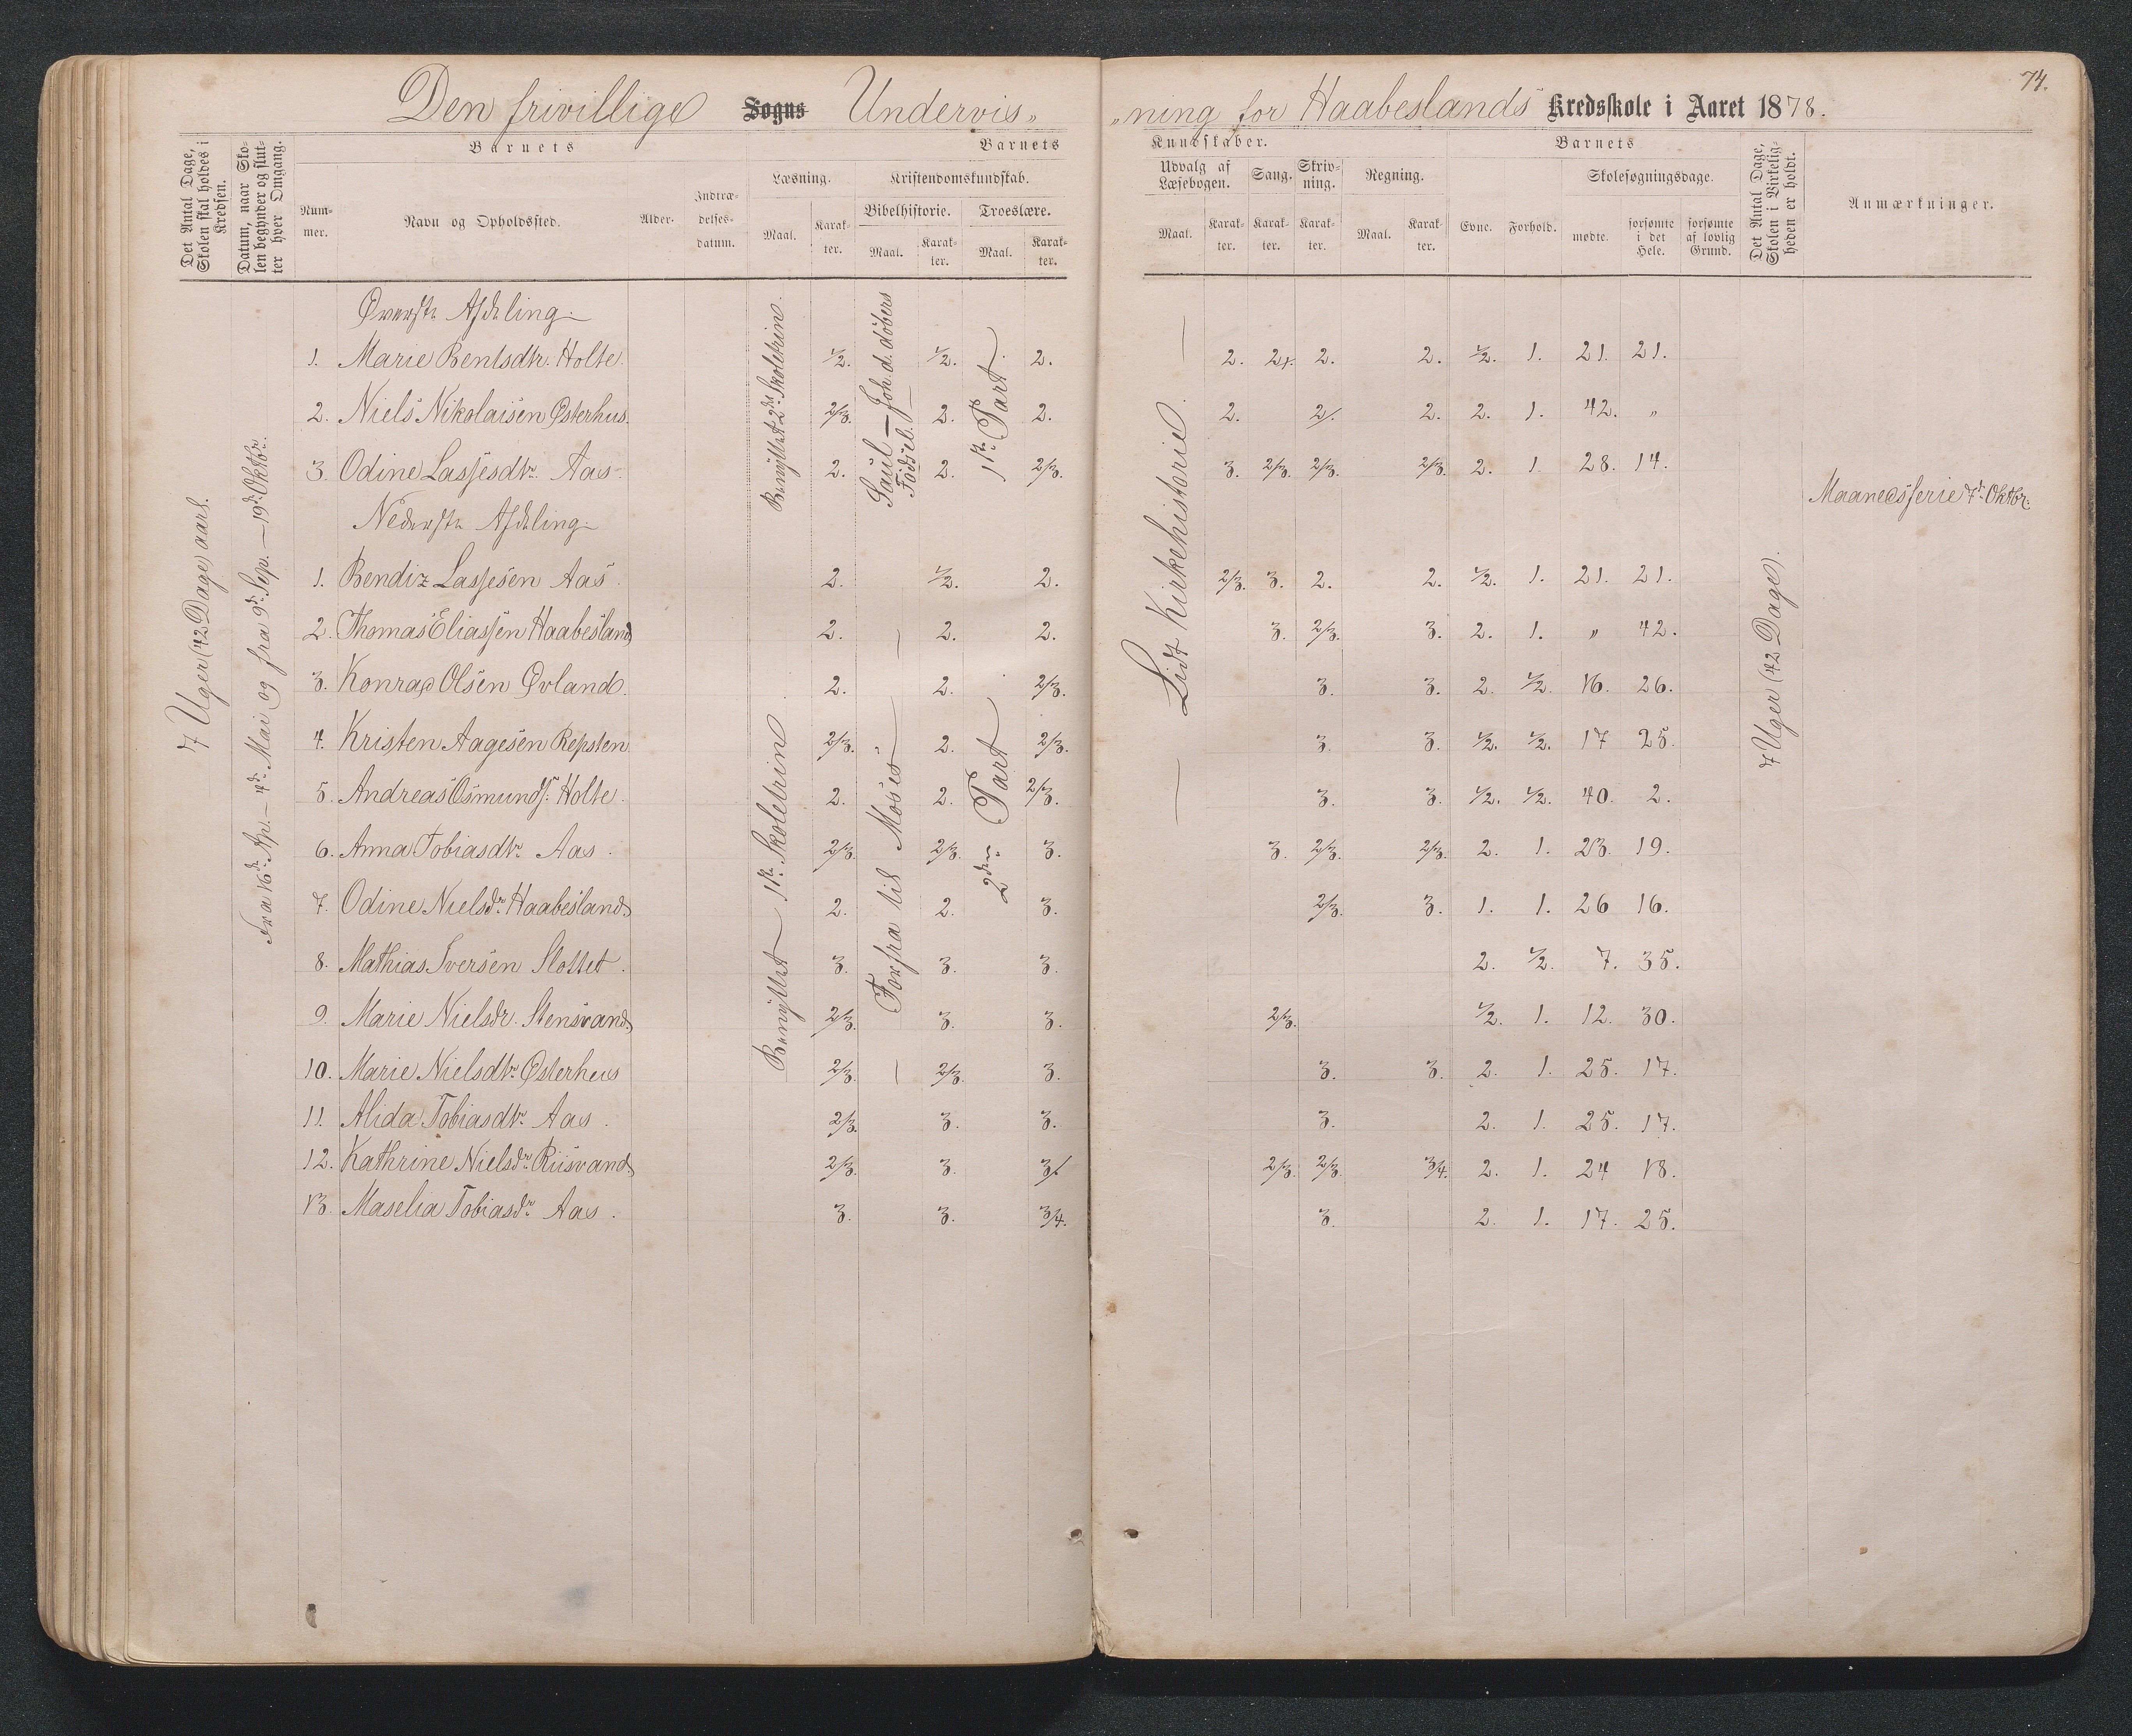 74.
Den frivillige Sogns Undervis„ „ning for Haabeslands Kredsskole i Aaret 1878.
Det Antal Dage, Skolen skal holdes i Kredsen.
Datum, naar Skolen begynder og slutter hver Omgang.
Barnets
Nummer.
Navn og Opholdssted.
Alder.
Indtrædelsesdatum.
Barnets Kundskaber.
Læsning.
Maal.
Karakter.
Kristendomskundskab.
Bibelhistorie.
Maal.
Karakter.
Troeslære.
Maal.
Karakter.
Udvalg af Læsebogen.
Maal.
Karakter.
Sang.
Karakter.
Skrivning.
Karakter.
Regning.
Maal.
Karakter.
Barnets
Evne.
Forhold.
Skolesøgningsdage.
mødte.
forsømte i det Hele.
forsømte af lovlig Grund.
Det Antal Dage, Skolen i Virkeligheden er holdt.
Anmærkninger.
7 Uger (42 Dage) aarl.
Fra 16de Ap. – 4de Mai og fra 9de Sep. – 19de Oktbr.
Benyttet 2det Skoletrin.
Saul – Joh. d. døbers Fødsel.
1ste Part.
Lidt Kirkehistorie.
7 Uger (42 Dage).
Maanedsferie 7de Oktbr.
Øverste Afdeling.
1. Marie Bentsdtr. Holte. 1/2. 1/2. 2. 2. 2+. 2. 2. 1/2. 1. 21. 21.
2. Niels Nikolaisen Østerhus. 2/3. 2. 2. 2. 2/. 2. 2. 1. 42. „
3. Odine Lassesdtr. Aas. 2. 2. 2/3. 3. 2/3. 2/3. 2/3. 2. 1. 28. 14.
Nederste Afdeling.
Benyttet 1ste Skoletrin
Forfra til Moses
2den Part
1. Bendiz Lassesen Aas. 2. 1/2. 2. 2/3. 3. 2. 2. 1/2. 1. 21. 21.
2. Thomas Eliassen Haabesland 2. 2. 2. 3. 2/3. 3. 2. 1. „ 42.
3. Konrad Olsen Øvland. 2. 2. 2/3. 3. 3. 2. 1/2. 16. 26.
4. Kristen Aagesen Repsten 2/3. 2. 2/3. 3. 3. 1/2. 1/2. 17 25.
5. Andreas Osmunds. Holte. 2. 2. 2/3. 3. 3. 1/2. 1/2. 40. 2.
6. Anna Tobiasdtr. Aas. 2/3. 2/3. 3. 3. 2/3. 2/3. 2. 1. 23. 19.
7. Odine Nielsdr. Haabesland. 2. 2. 3. 2/3. 3. 1. 1. 26 16.
8. Mathias Iversen Slottet. 3. 3. 3. 2. 1/2. 7. 35.
9. Marie Nielsdr. Stensvand. 2/3. 3. 3. 2/3. 1/2. 1. 12. 30.
10. Marie Nielsdtr. Østerhus 2/3. 2/3. 3. 3. 3. 2. 1. 25. 17.
11. Alida Tobiasdtr. Aas. 2/3. 3. 3. 3. 2. 1. 25. 17.
12. Kathrine Nielsdr. Riisvand. 2/3. 3. 3/ 2/3. 2/3. 3/4. 2. 1. 24 18.
13. Maselia Tobiasdr. Aas. 3. 3. 3/4. 3. 2. 1. 17. 25.